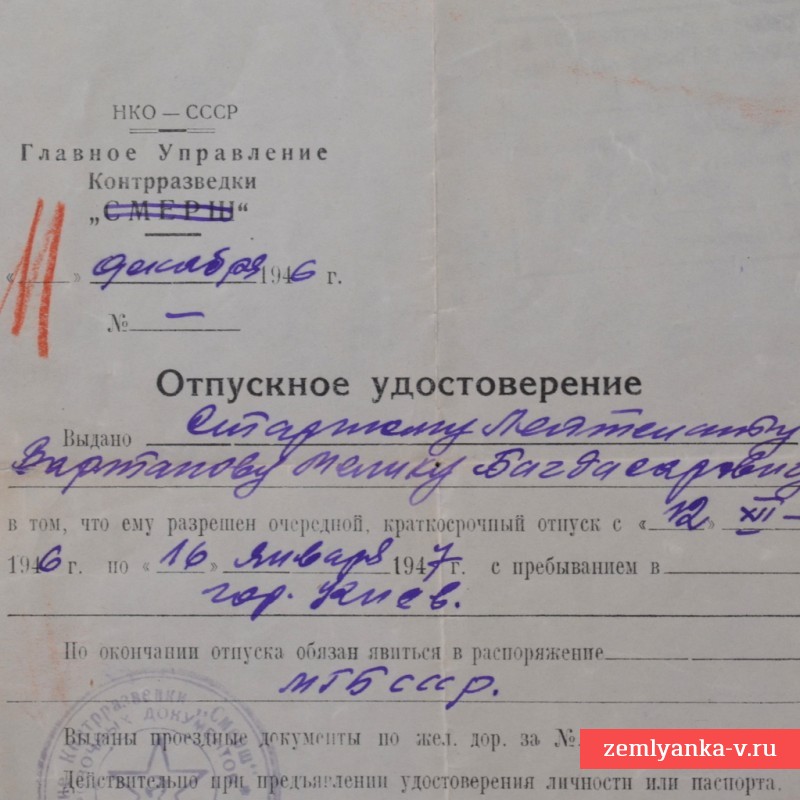 НКО — СССР
Главное Управление
Контрразведки
„СМЕРШ“
«11» декабря 1946 г.
№ —
Отпускное удостоверение
Выдано Старшему Лейтенанту
Вартанову Мелику Багдасарович
в том, что ему разрешен очередной, краткосрочный отпуск с «12» XII—
1946 г. по «16» января 1947 г. с пребыванием в
гор. Киев.
По окончании отпуска обязан явиться в распоряжение
МГБ СССР.
Выданы проездные документы по жел. дор. за №
Действительно при предъявлении удостоверения личности или паспорта.
Контрразведки „Смерш“
документов
zemlyanka-v.ru